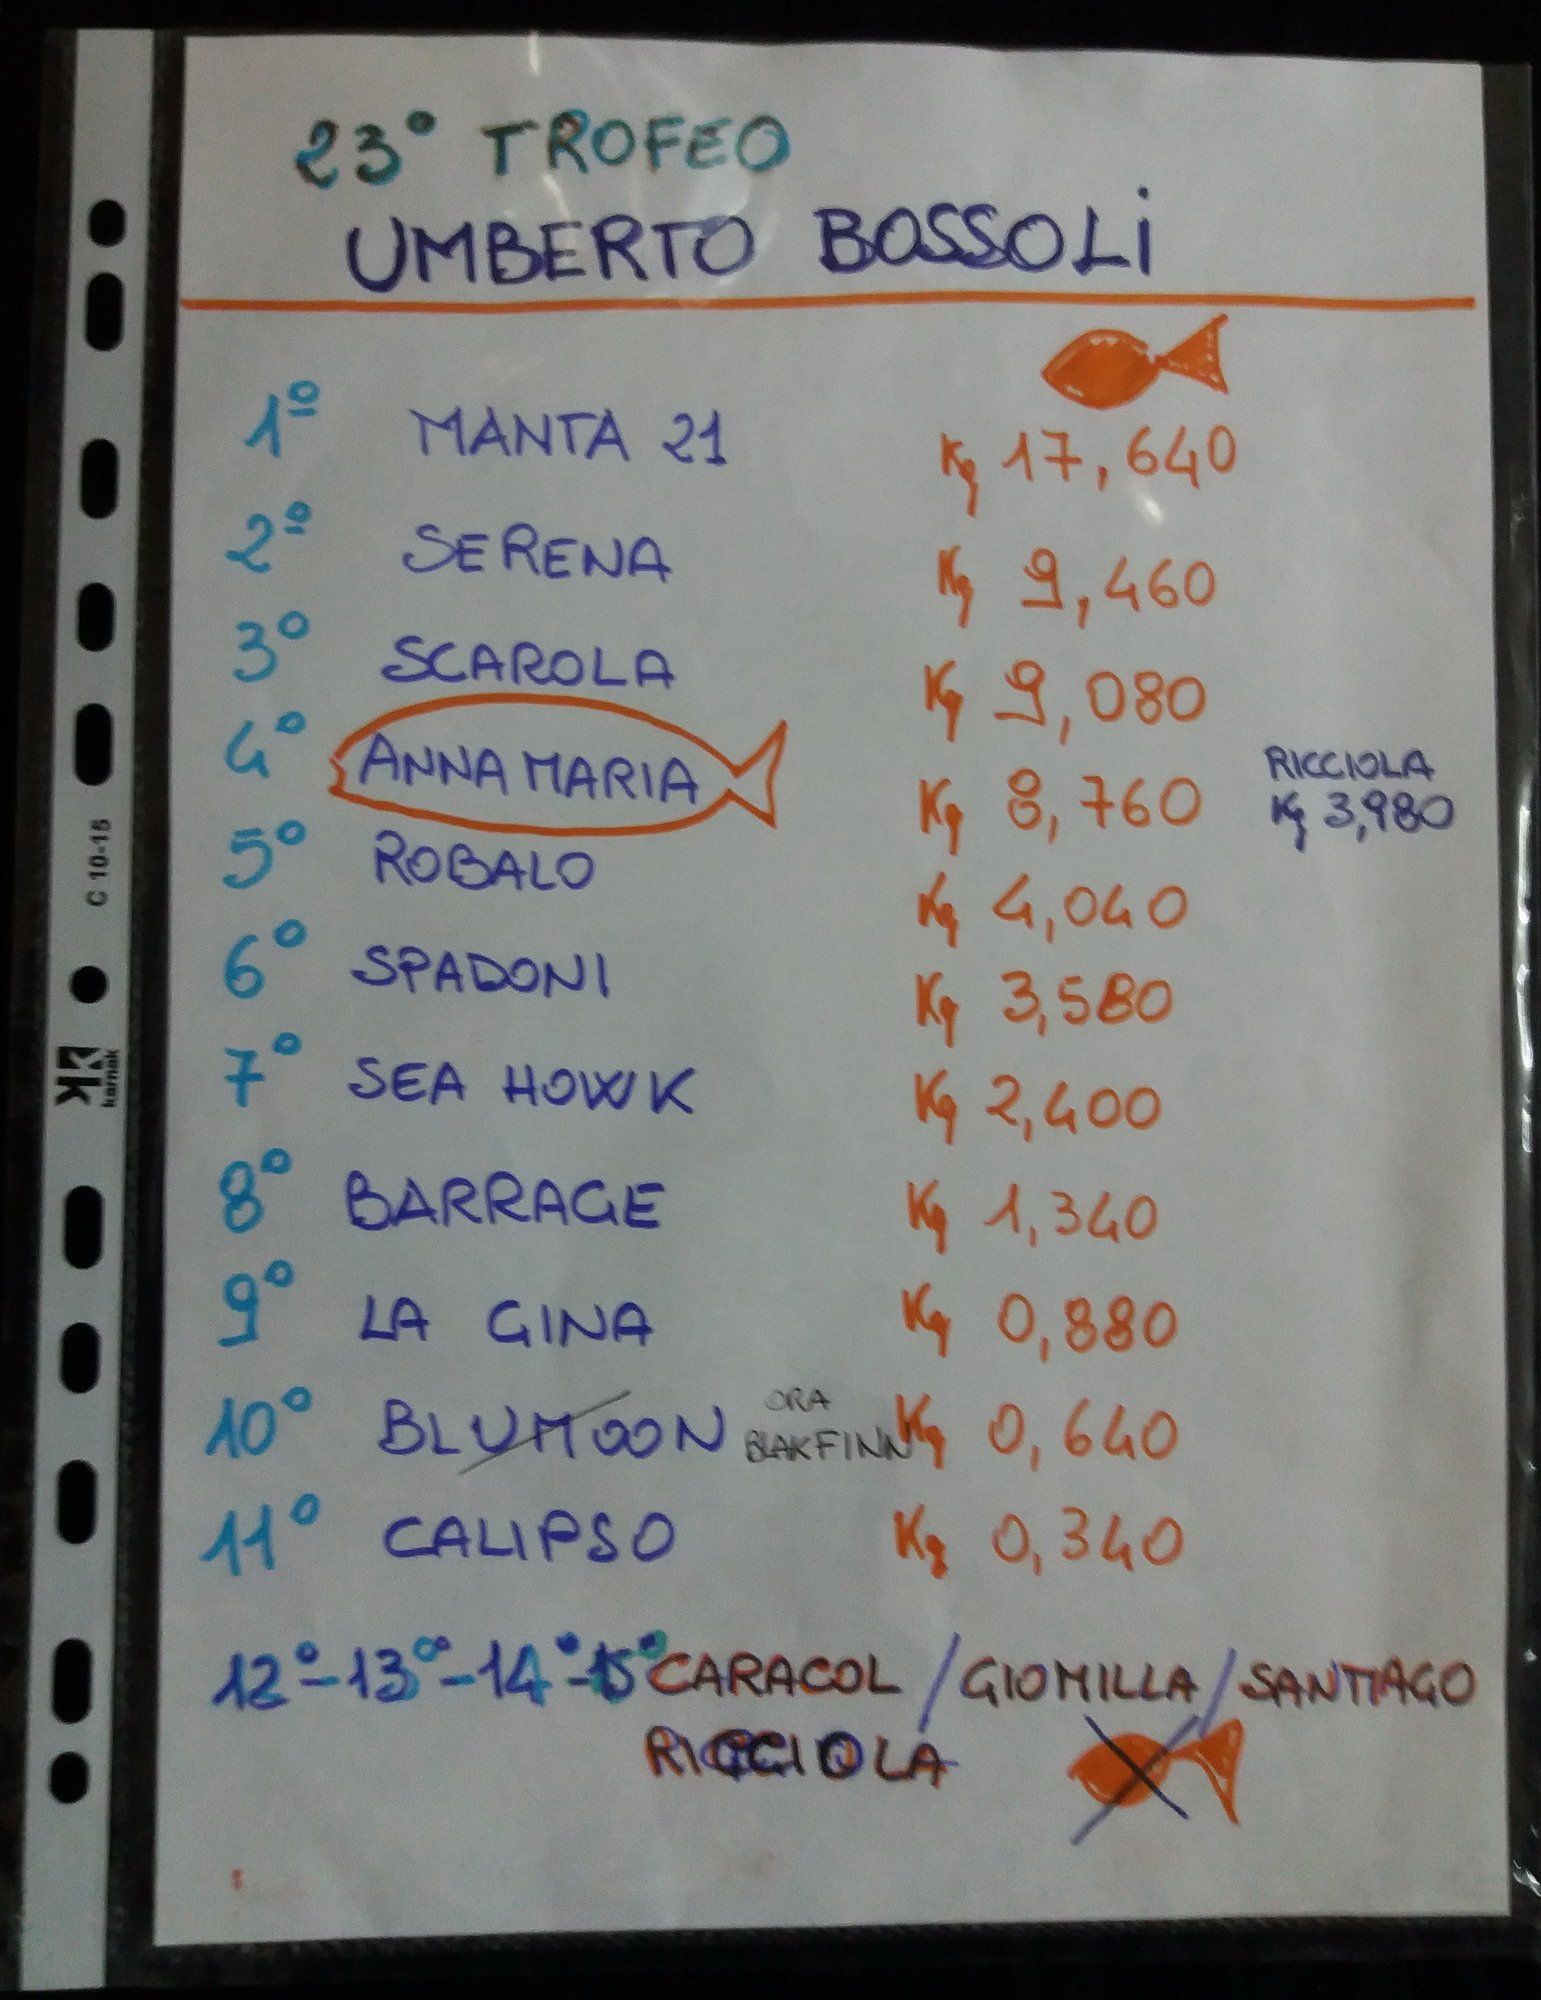 23° TROFEO
UMBERTO BOSSOLI
1º MANTA 21 Kg 17,640
2º SERENA Kg 9,460
3º SCAROLA Kg 9,080
4º ANNAMARIA Kg 8,760 RICCIOLA Kg 3,980
5º ROBALO Kg 4,040
6º SPADONI Kg 3,580
7º SEA HOWK Kg 2,400
8º BARRAGE Kg 1,340
9º LA GINA Kg 0,880
10º BLUMOON ORA BLAKFINN Kg 0,640
11º CALIPSO Kg 0,340
12°-13°-14°-15° CARACOL / GIOMILLA / SANTIAGO
RICCIOLA
C 10-15
karnak